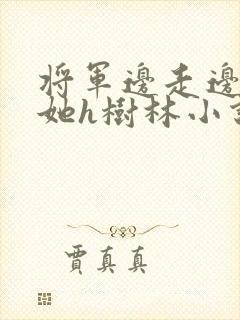 將軍邊走邊
她h樹林小
賈真真